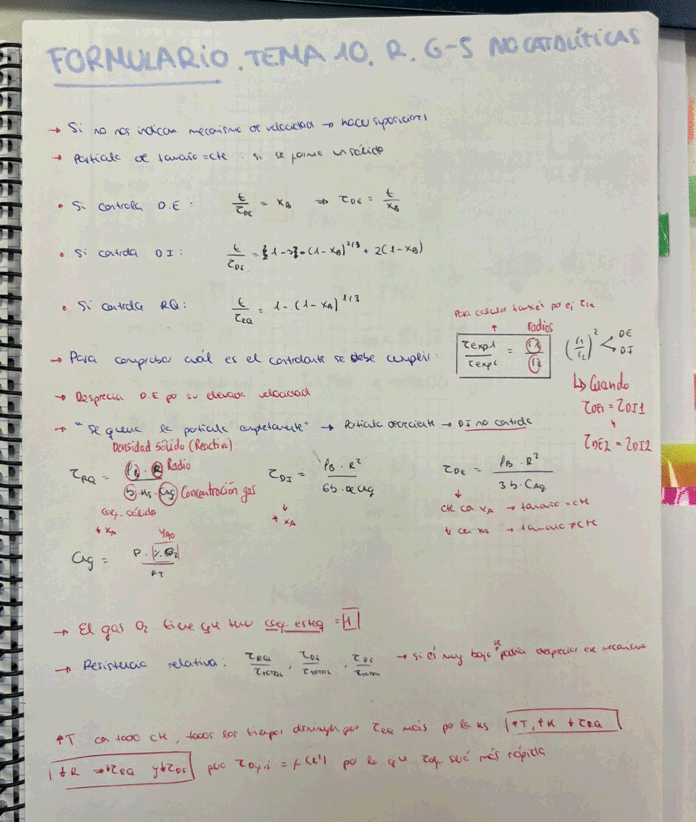 FORMULARIO. TEMA 10. R. G-S NO CATALÍTICAS
→ Si no nos indican mecanismo de velocidad → hacer suposiciones
→ Partícula de tamaño = cte : si se forma un sólido
• Si controla D.E : t/τDE = XB ⇒ τDE = t/XB
• Si controla DI : t/τDI = 1-3·(1-XB)^2/3 + 2(1-XB)
• Si controla RQ : t/τRQ = 1-(1-XB)^1/3
Para calcular
radios
→ Para comprobar cuál es el controlante se debe cumplir: τexp1/τexp2 = r1/r2 (r1/r2)^2 < DE DI
↳ Cuando
τDE1 = τDI1
τDE2 = τDI2
→ Desprecia D.E por su elevada velocidad
→ "Se quema la partícula completamente" → Partícula decreciente → DI no controla
Densidad sólido (Reactivo)
Radio
τRQ = ρB·R / b·ks·CAg τDI = ρB·R² / 6b·DeCAg τDE = ρB·R² / 3b·CAg
Concentración gas
coef. sólido
cte → tamaño = cte
→ tamaño ≠ cte
YA0
CAg = P·%O2 / RT
→ El gas O2 tiene que tener coef. esteq = 1
→ Resistencia relativa: τRQ/τTOTAL , τDI/τTOTAL , τDE/τTOTAL → si es muy bajo podría despreciar ese mecanismo
↑T con todo cte, todos los tiempos disminuyen τRQ más por la ks ↑T, ↑K ↓τRQ
↓R ⇒ ↓τRQ y ↓τDI pero = f(R²) por lo que será más rápida